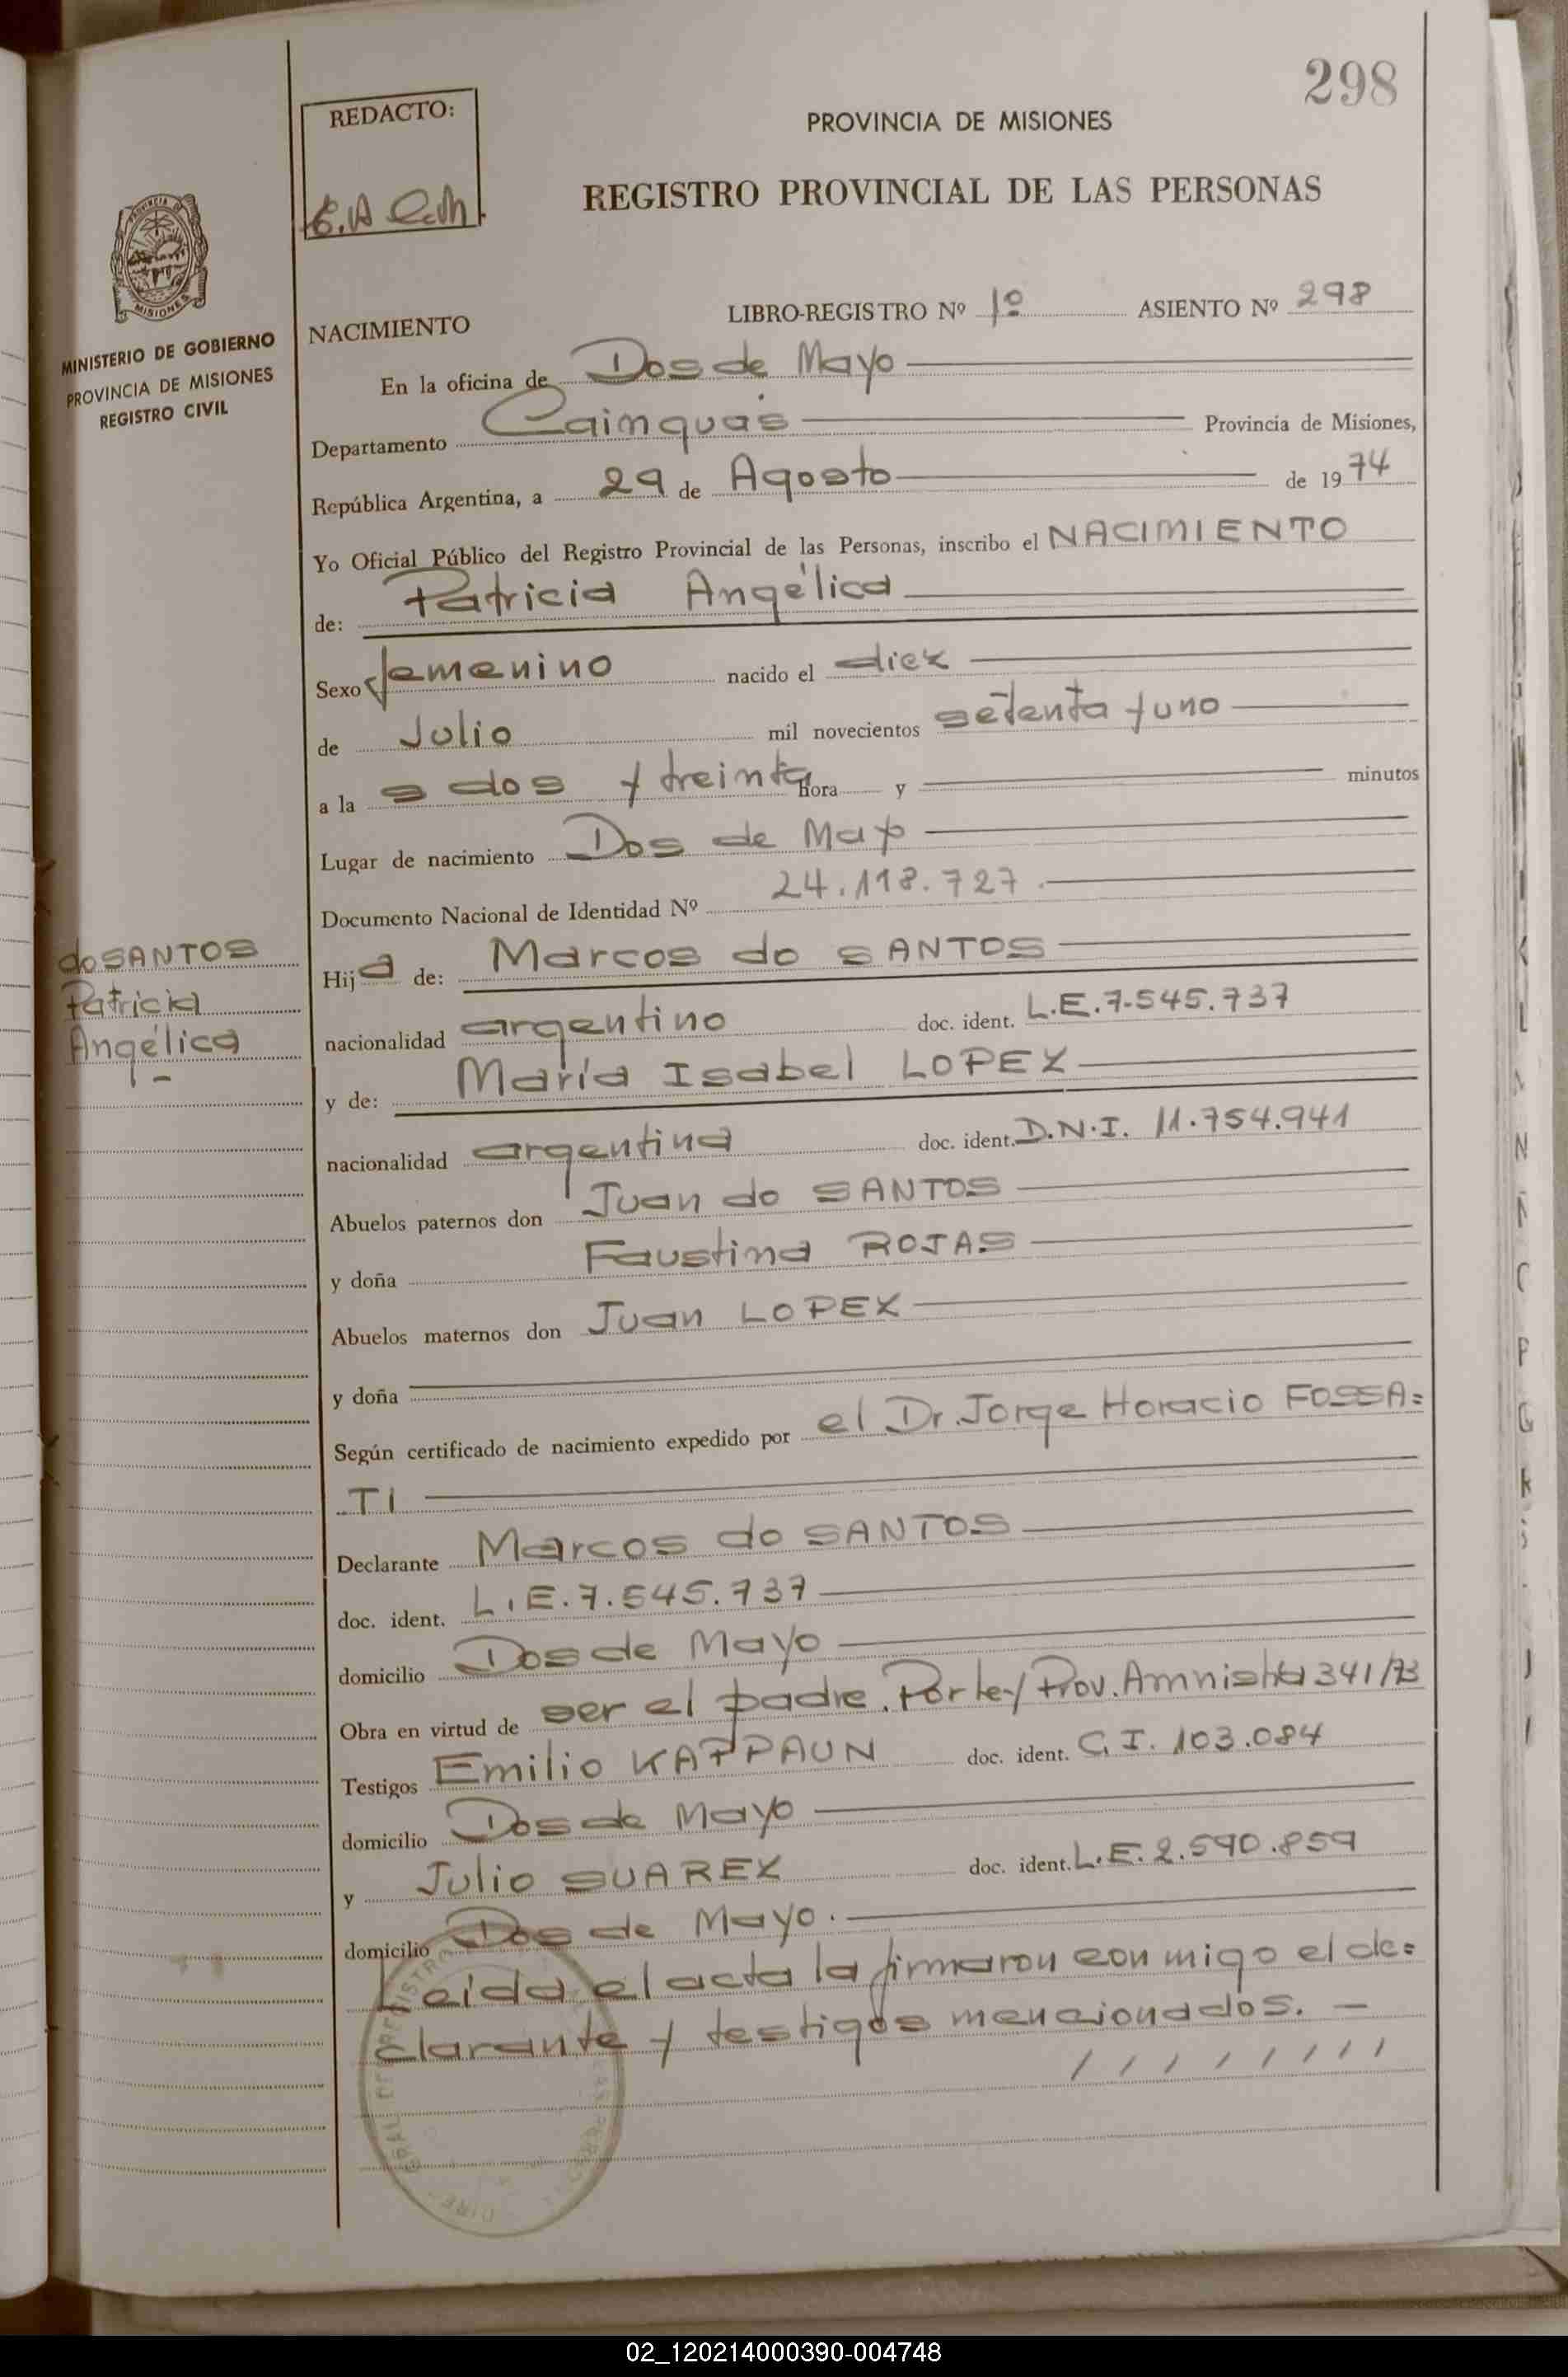 298
REDACTO:
PROVINCIA DE MISIONES
REGISTRO PROVINCIAL DE LAS PERSONAS
PROVINCIA DE
MISIONES
MINISTERIO DE GOBIERNO
PROVINCIA DE MISIONES
REGISTRO CIVIL
NACIMIENTO
LIBRO-REGISTRO Nº 1º ASIENTO Nº 298
En la oficina de Dos de Mayo
Departamento Cainguás Provincia de Misiones,
República Argentina, a 29 de Agosto de 1974
Yo Oficial Público del Registro Provincial de las Personas, inscribo el NACIMIENTO
de: Patricia Angélica
Sexo femenino nacido el diez
de Julio mil novecientos setenta y uno
a la s dos y treinta hora y minutos
Lugar de nacimiento Dos de Mayo
Documento Nacional de Identidad Nº 24.118.727.
do SANTOS
Patricia
Angélica
Hija de: Marcos do SANTOS
nacionalidad argentino doc. ident. L.E.7.545.737
y de: María Isabel LOPEZ
nacionalidad argentina doc. ident. D.N.I. 11.754.941
Abuelos paternos don Juan do SANTOS
y doña Faustina ROJAS
Abuelos maternos don Juan LOPEZ
y doña
Según certificado de nacimiento expedido por el Dr. Jorge Horacio FOSSA=
TI
Declarante Marcos do SANTOS
doc. ident. L.E.7.545.737
domicilio Dos de Mayo
Obra en virtud de ser el padre. Por ley Prov. Amnistia 341/73
Testigos Emilio KAPPAUN doc. ident. C.I. 103.084
domicilio Dos de Mayo
y Julio SUAREZ doc. ident. L.E. 2.590.859
domicilio Dos de Mayo.
Leida el acta la firmaron conmigo el de=
clarante y testigos mencionados. —
02_120214000390-004748